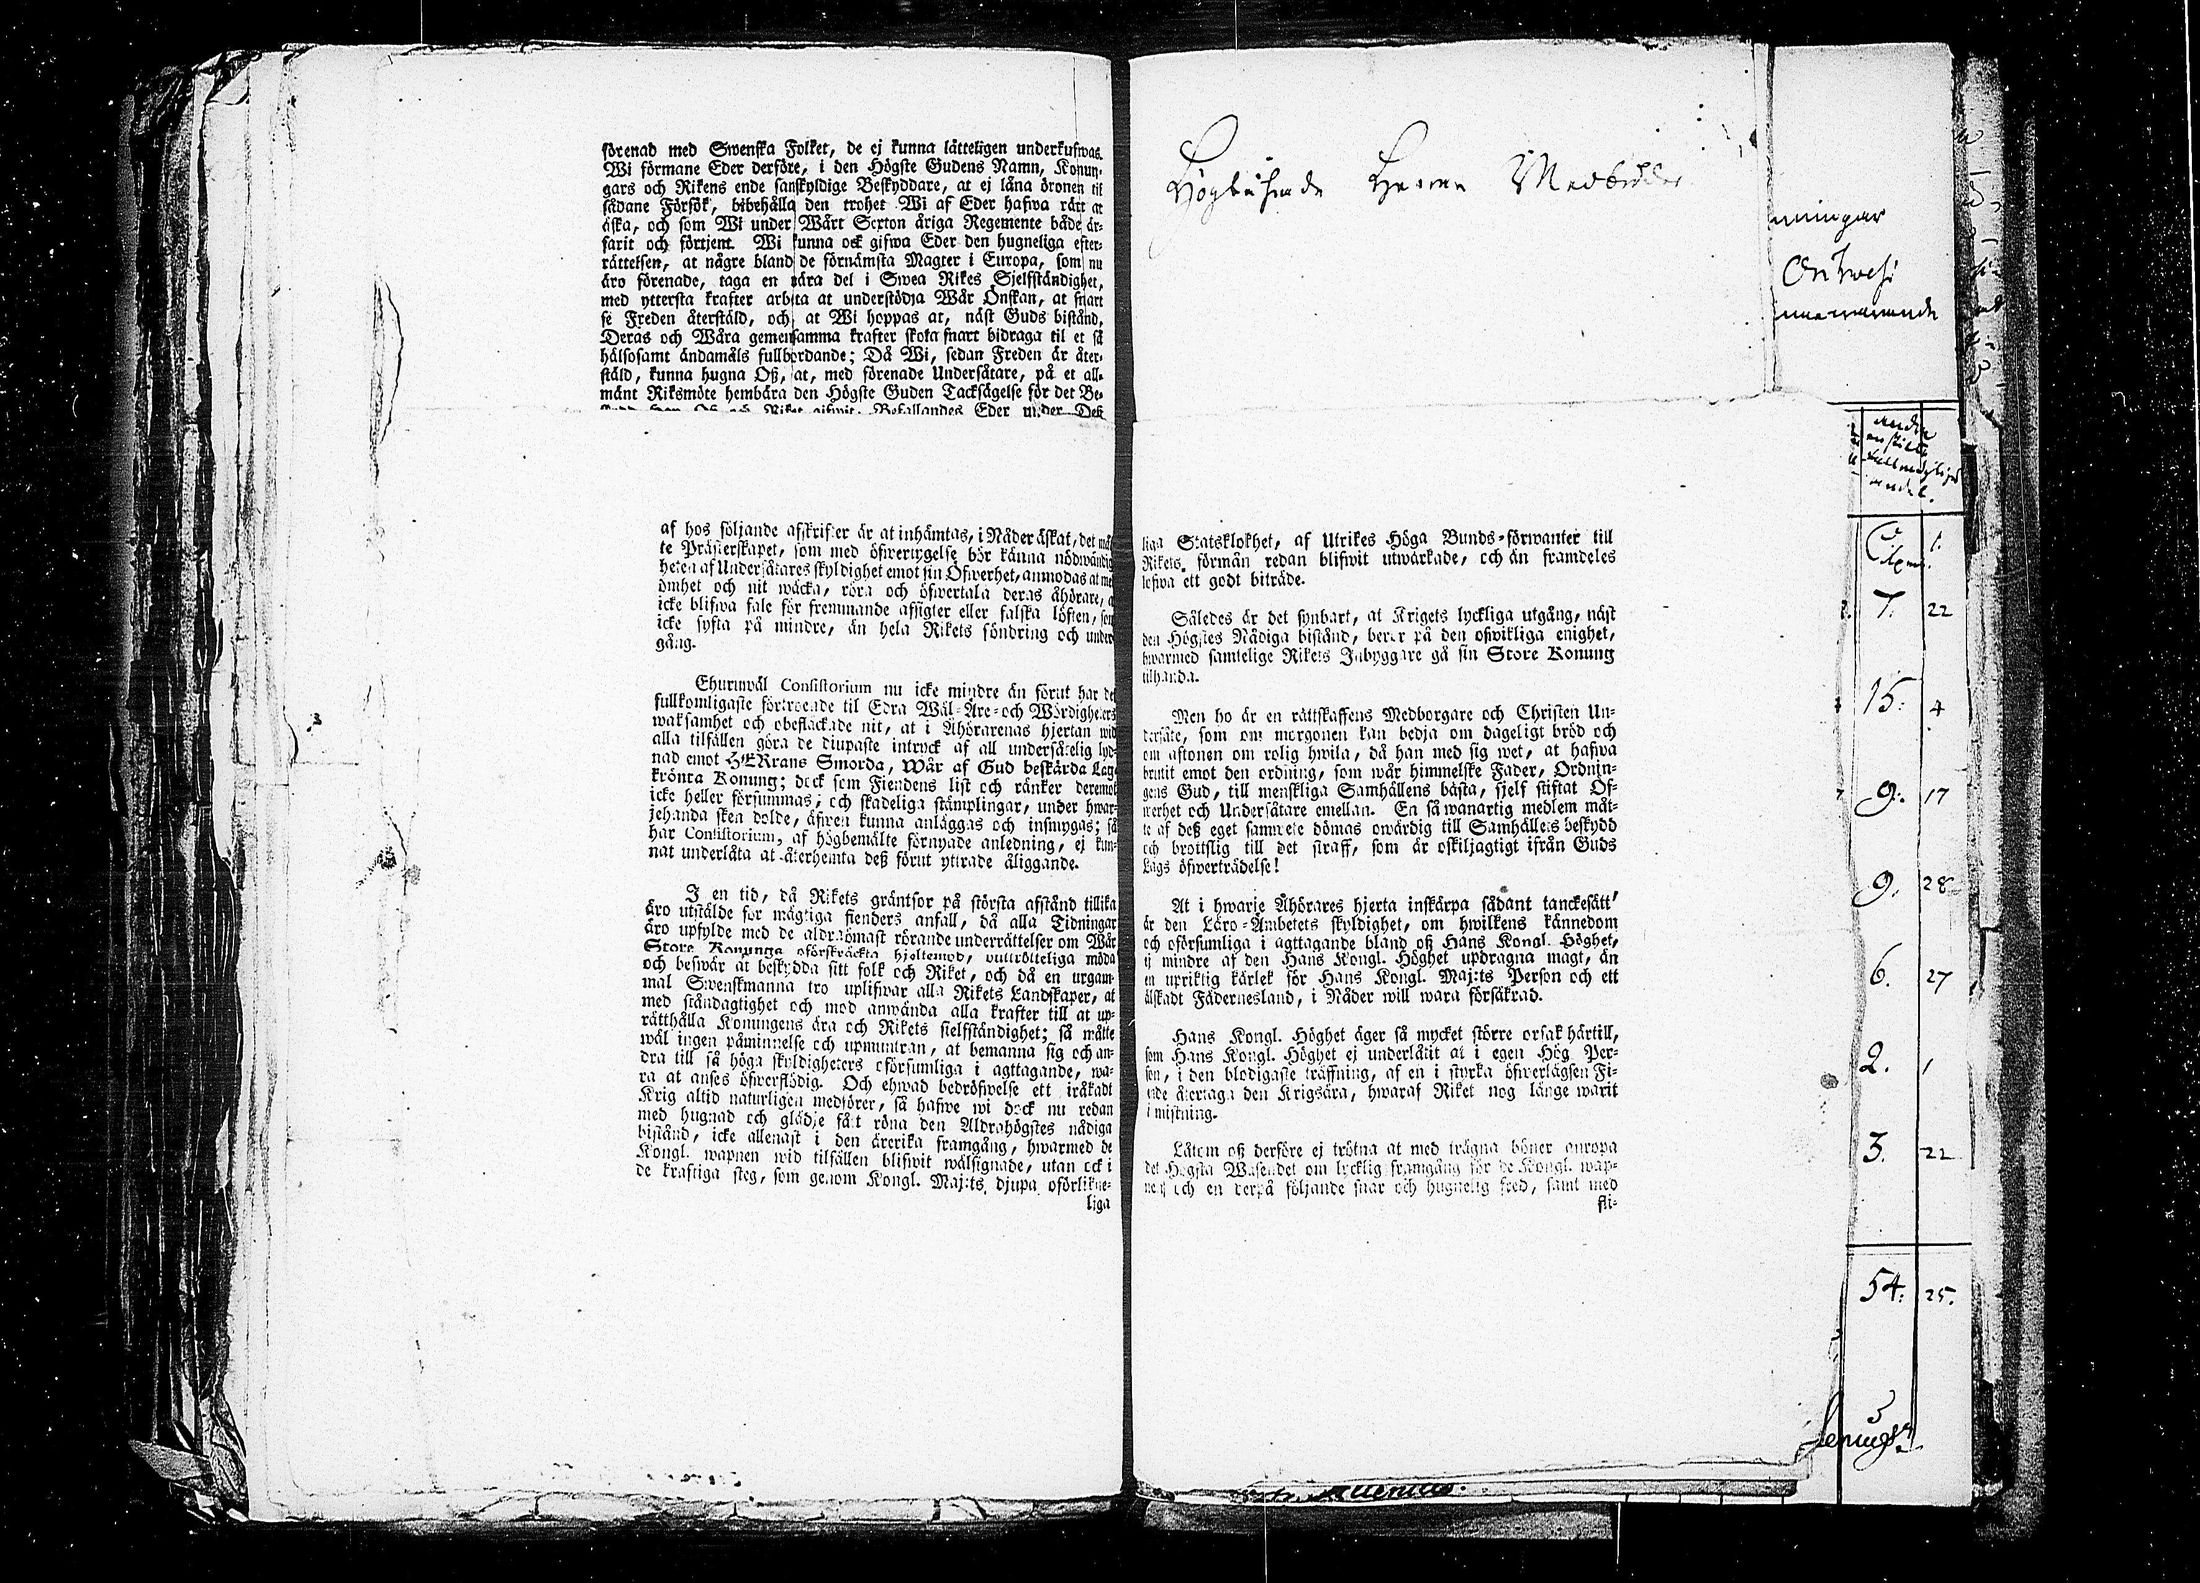 förenad med Swenska Folket, de ej kunna lätteligen underkufwas.
Wi förmane Eder derföre, i den Högste Gudens Namn, Konun-
gars och Rikens ende sanskyldige Beskyddare, at ej låna öronen til
sådane Försök, bibehålla den trohet Wi af Eder hafwa rätt at
äska, och som Wi under Wårt Sexton åriga Regemente både är-
farit och förtjent. Wi kunna ock gifwa Eder den hugneliga efter-
rättelsen, at någre bland de förnämsta Magter i Europa, som nu
äro förenade, taga en nära del i Swea Rikes Sjelfständighet,
med yttersta krafter arbeta at understödja Wår Önskan, at snart
se Freden återstäld, och at Wi hoppas at, näst Guds bistånd,
Deras och Wåra gemensamma krafter skola snart bidraga til et så
hälsosamt ändamåls fullbordande; Då Wi, sedan Freden är åter-
stäld, kunna hugna Oß, at, med förenade Undersåtare, på et all-
mänt Riksmöte hembära den Högste Guden Tacksägelse för det Be-
Riket gifwit. Befallandes Eder under Deß
af hos följande afskrifter är at inhämtas, i Nåder äskat, det mås-
te Prästerskapet, som med öfwertygelse bör känna nödwändig
heten af Undersåtares skyldighet emot sin Öfwerhet, anmodas at med
ömhet och nit wäcka, röra och öfwertala deras åhörare, at
icke blifwa fale för fremmande affigter eller falska löften, som
icke syfta på mindre, än hela Rikets söndring och under
gång.
Ehuruwäl Consistorium nu icke mindre än förut har det
fullkomligaste förtroende til Edra Wäl-Äre-och Wördigheters
waksamhet och obefläckade nit, at i Åhörarenas hjertan wid
alla tilfällen göra de djupaste intryck af all undersåtelig lyd-
nad emot HERrans Smorda, Wår af Gud beskärda Lag-
krönta Konung; dock som Fiendens list och ränker deremot
icke heller försummas, och skadeliga stämplingar, under hwar-
jehanda sken dolde, äfwen kunna anläggas och insmygas; så
har Consistorium, af högbemälte förnyade anledning, ej kun-
nat underlåta at återhemta deß förut yttrade åliggande.
I en tid, då Rikets gräntsor på största afstånd tillika
äro utstälde för mägtiga fienders anfall, då alla Tidningar
äro upfylde med de aldraömast rörande underrättelser om Wår
Store Konungs oförskräckta hjeltemod, outtrötteliga möda
och beswär at beskydda sitt folk och Riket, och då en urgam-
mal Swenskmanna tro uplifwar alla Rikets Landskaper, at
med ståndagtighet och mod anwända alla krafter till at up-
rätthålla Konungens ära och Rikets sielfständighet; så måtte
wäl ingen påminnelse och upmuntran, at bemanna sig och an-
dra till så höga skyldigheters oförsumliga i agttagande, wa-
ra at anses öfwerflödig. Och ehwad bedröfwelse ett iråkadt
Krig altid naturligen medförer, så hafwe wi dock nu redan
med hugnad och glädje fått röna den Aldrahögstes nådiga
bistånd, icke allenast i den ärerika framgång, hwarmed de
Kongl. wapnen wid tilfällen blifwit wälsignade, utan ock i
de kraftiga steg, som genom Kongl. Maj:ts djupa oförlikne-
liga
Högtährade Herrar Medbröder
liga Statsklokhet, af Utrikes Höga Bunds-förwanter till
Rikets förmån redan blifwit utwärkade, och än framdeles
lofwa ett godt biträde.
Således är det synbart, at Krigets lyckliga utgång, näst
den Högstes Nådiga bistånd, beror på den oswikliga enighet,
hwarmed samtelige Rikets Inbyggare gå sin Store Konung
tilhanda.
Men ho är en rättskaffens Medborgare och Christen Un-
dersåte, som om morgonen kan bedja om dageligt bröd och
om aftonen om rolig hwila, då han med sig wet, at hafwa
brutit emot den ordning, som wår himmelske Fader, Ordnin-
gens Gud, till menskliga Samhällens bästa, sjelf stiftat Öf-
werhet och Undersåtare emellan. En så wanartig medlem måt-
te af deß eget samwete dömas owärdig till Samhällets beskydd
och brottslig till det straff, som är oskiljagtigt ifrån Guds
Lags öfwerträdelse!
At i hwarje Åhörares hjerta inskärpa sådant tanckesätt
är den Läro-Ämbetets skyldighet, om hwilkens kännedom
och oförsumliga i agttagande bland oß Hans Kongl. Höghet,
ej mindre af den Hans Kongl. Höghet updragna magt, än
en upriktig kärlek för Hans Kongl. Maj:ts Person och ett
älskadt Fädernesland, i Nåder will wara försäkrad.
Hans Kongl. Höghet äger så mycket större orsak härtill,
som Hans Kongl. Höghet ej underlåtit at i egen Hög Per-
son, i den blodigaste träffning, af en i styrka öfwerlägsen Fi-
ende återtaga den Krigsära, hwaraf Riket nog länge warit
i mistning.
Låtom oß derföre ej trötna at med trägna böner anropa
det Högsta Wäsendet om lycklig framgång för de Kongl. wap-
nen och en derpå följande snar och hugnelig fred, samt med
fli-
ningar
andra
andel.
1.
7. 22
15: 4
9: 17
9. 28
6. 27
2. 1
3. 22
54: 25.